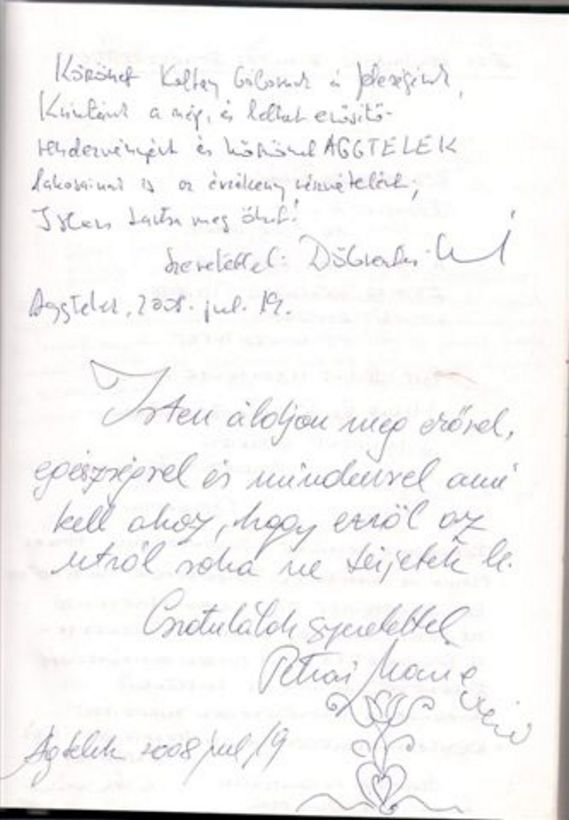 Köszönet Koltay Gábornak és feleségének,
a nép, és lelket erősítő
rendezvényért és köszönet AGGTELEK
lakosainak is az érzékeny részvételért,
Isten tartsa meg őket!
Szeretettel:
Aggtelek, 2008. jul. 19.
Isten áldjon meg erővel,
egészséggel és mindennel ami
kell ahoz, hogy erről az
utról soha ne térjetek le.
Gratulálok szeretettel
Petrás Mária
Agtelek 2008 jul 19